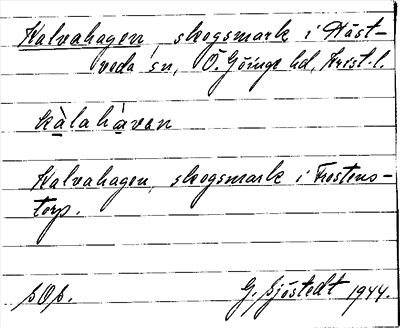 Kalvahagen, skogsmark i Häst-
veda sn, Ö. Göinge hd, Krist. l.
kàlahàvan
Kalvahagen, skogsmark i Frostens-
torp.
sOs.  G. Sjöstedt 1944.